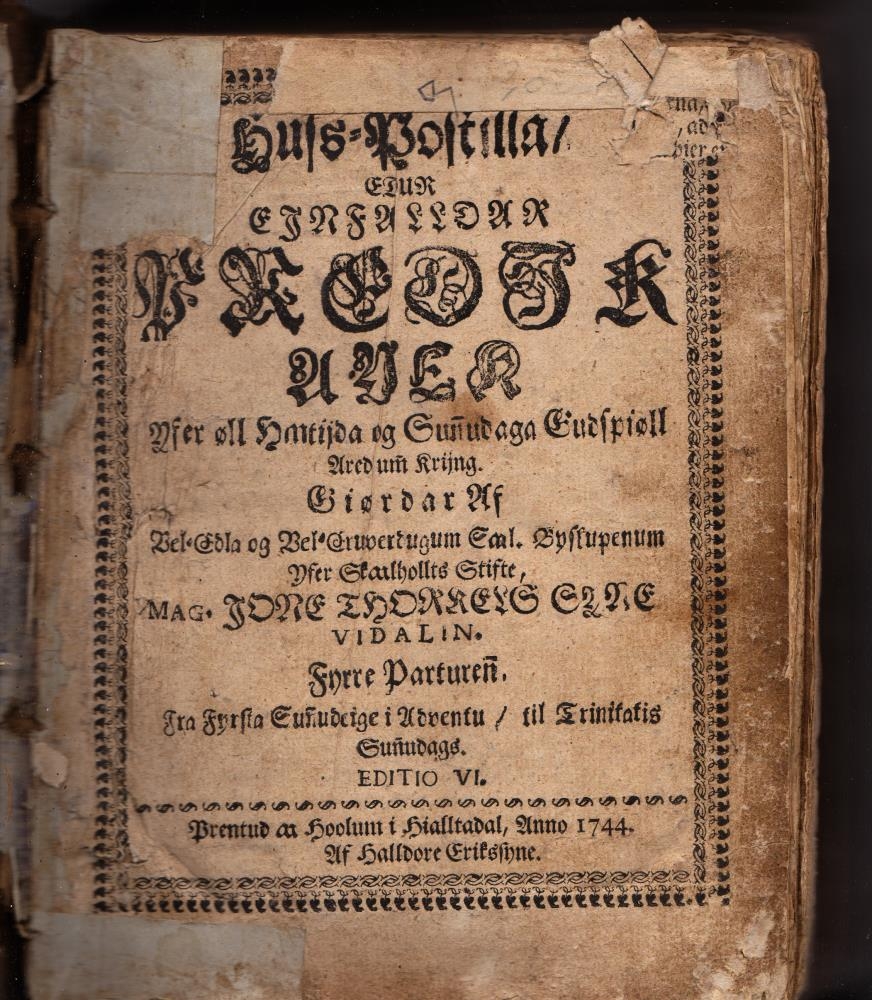 Huss-Postilla/
EDUR
EJNFALLDAR
PREDJK
ANER
Yfer øll Hꜳtijda og Sun̄udaga Gudspiøll
Ared um̄ Krijng.
Giørdar Af
Vel-Edla og Vel-Eruverdugum Sæl. Byskupenum
Yfer Skꜳlhollts Stifte,
MAG. JONE THORKELS SYNE
VIDALIN.
Fyrre Parturen̄.
Fra Fyrsta Sun̄udeige i Adventu / til Trinitatis
Sun̄udags.
EDITIO VI.
Prentud ꜳ Hoolum i Hialltadal, Anno 1744.
Af Halldore Erikssyne.